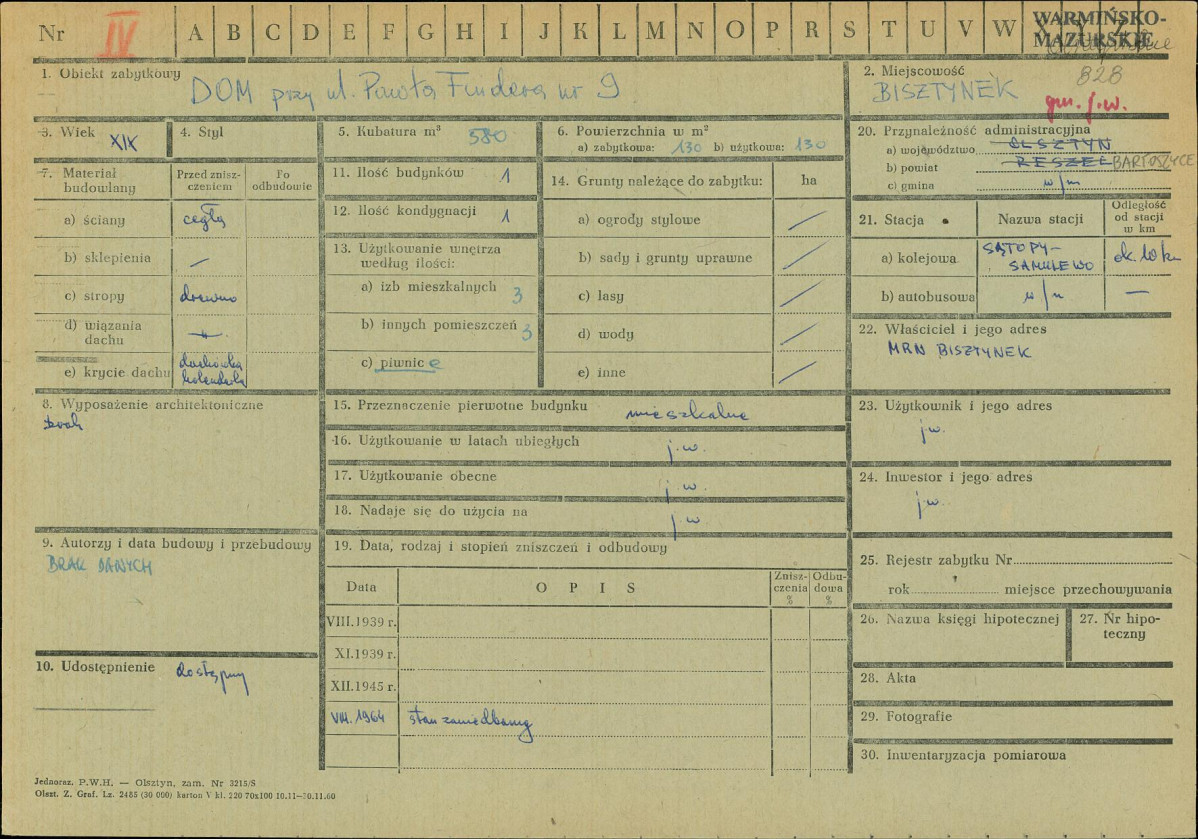 Nr IV A B C D E F G H I J K L M N O P R S T U V W X Y Z
WARMIŃSKO-
MAZURSKIE
828
1. Obiekt zabytkowy
DOM przy ul. Pawła Findera nr 9
2. Miejscowość
BISZTYNEK
gm. j.w.
3. Wiek
XIX
4. Styl
5. Kubatura m³ 580
6. Powierzchnia w m²
a) zabytkowa: 130 b) użytkowa: 130
20. Przynależność administracyjna
a) województwo OLSZTYN
b) powiat RESZEL BARTOSZYCE
c) gmina w/m
7. Materiał budowlany
Przed znisz-
czeniem
Po
odbudowie
a) ściany cegła
b) sklepienia —
c) stropy drewno
d) wiązania
dachu —"—
e) krycie dachu dachówka
holenderka
11. Ilość budynków 1
12. Ilość kondygnacji 1
13. Użytkowanie wnętrza
według ilości:
a) izb mieszkalnych 3
b) innych pomieszczeń 3
c) piwnic e
14. Grunty należące do zabytku: ha
a) ogrody stylowe
b) sady i grunty uprawne
c) lasy
d) wody
e) inne
21. Stacja Nazwa stacji
Odległość
od stacji
w km
a) kolejowa SĄTOPY-
SAMULEWO ok. 10 km
b) autobusowa w/m —
22. Właściciel i jego adres
MRN BISZTYNEK
8. Wyposażenie architektoniczne
brak
15. Przeznaczenie pierwotne budynku mieszkalne
16. Użytkowanie w latach ubiegłych j.w.
17. Użytkowanie obecne j.w.
18. Nadaje się do użycia na j.w
23. Użytkownik i jego adres
j.w.
24. Inwestor i jego adres
j.w.
9. Autorzy i data budowy i przebudowy
BRAK DANYCH
19. Data, rodzaj i stopień zniszczeń i odbudowy
Data OPIS
Znisz-
czenia
%
Odbu-
dowa
%
VIII.1939 r.
XI.1939 r.
XII.1945 r.
VIII.1964 stan zaniedbany
10. Udostępnienie dostępny
25. Rejestr zabytku Nr
rok miejsce przechowywania
26. Nazwa księgi hipotecznej
27. Nr hipo-
teczny
28. Akta
29. Fotografie
30. Inwentaryzacja pomiarowa
Jednoraz. P.W.H. — Olsztyn, zam. Nr 3215/S
Olszt. Z. Graf. Lz. 2485 (30 000) karton V kl. 220 70x100 10.11—30.11.60